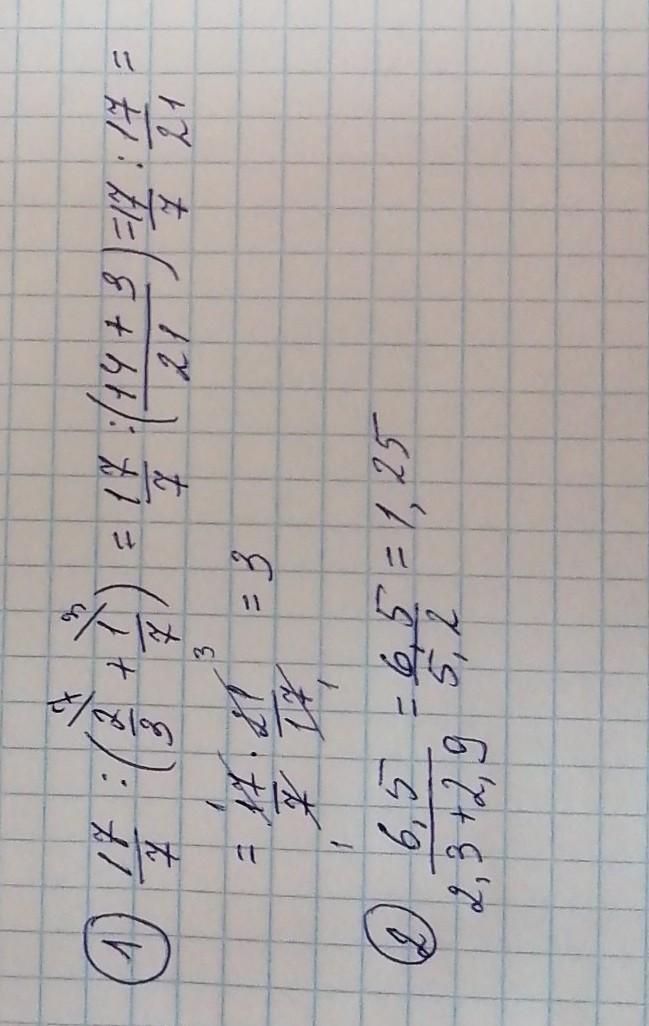 ① 17/7 : (2/3 + 1/7) = 17/7 : (14 + 3/21) = 17/7 : 17/21 =
= 17/7 · 21/17 = 3
② 6,5/2,3 + 2,9 = 6,5/5,2 = 1,25